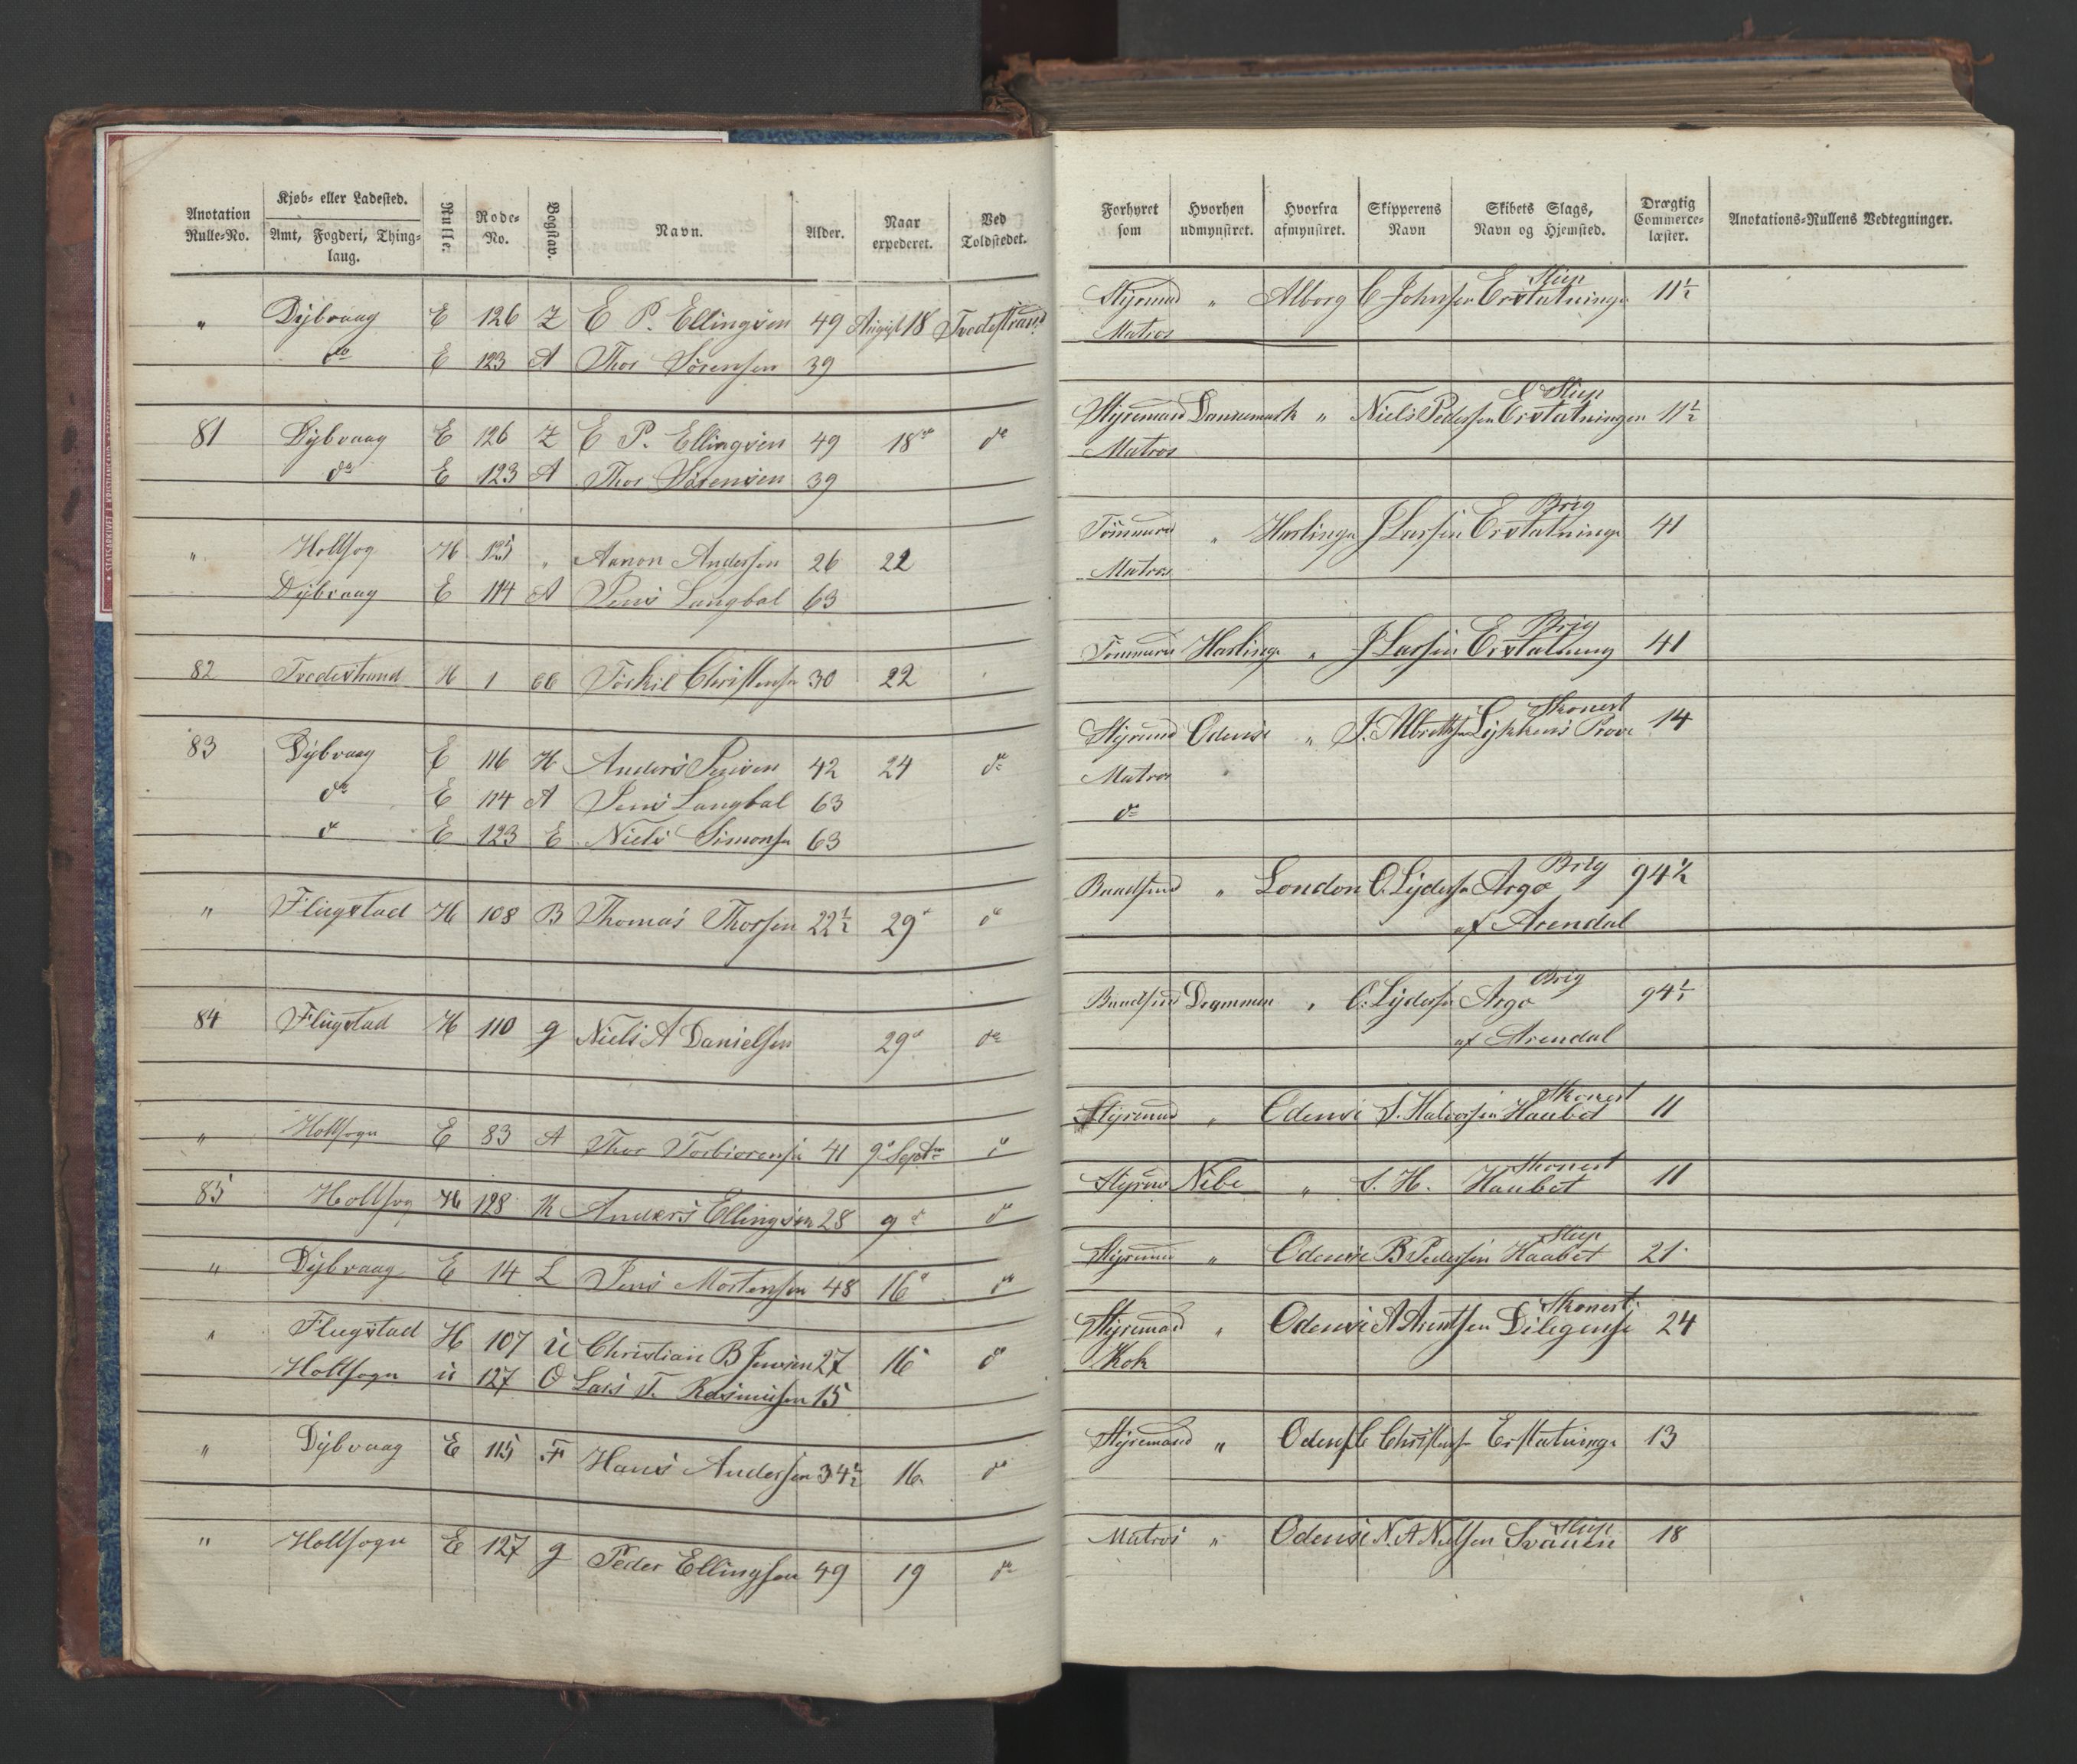 Anotation Rulle-No. Kjøb- eller Ladested. Amt, Fogderi, Thinglaug. Rulle. Rode-No. Bogstav. Navn. Alder. Naar expederet. Ved Toldstedet.
" Dybvaag E 126 Z E P. Ellingsen 49 August 18 Tvedestrand
do E 123 A Thor Sörensen 39
81 Dybvaag E 126 Z E P. Ellingsen 49 18de do
do E 123 A Thor Sörensen 39
" Holtsog H 125 " Aanon Anderssen 26 22
Dybvaag E 114 A Jens Langbal 63
82 Tvedestrand H 1 Torkil Christensn 30 22
83 Dybvaag E 116 H Anders Jensen 42 24 do
do E 114 A Jens Langbal 63
do E 123 E Niels Simonsn 63
" Flugstad H 108 B Thomas Thorsen 22½ 29d do
84 Flugstad H 110 g Niels A Danielsen 29d do
" Holtsogn E 83 A Thor Torbiorensn 41 9d Septbr do
85 Holtsog H 128 K Anders Ellingsen 28 9d do
" Dybvaag E 14 L Jens Mortensen 48 16d do
" Flugstad H 107 ü Christian B Jensen 27 16 do
Holtsogn ü 127 O Lars T. Rasmusen 15
" Dybvaag E 115 F Hans Anderssen 34½ 16 do
" Holtsogn E 127 g Peder Ellingsen 49 19 do
Forhyret som Hvorhen udmynstret. Hvorfra afmynstret. Skipperens Navn Skibets Slags, Navn og Hjemsted. Drægtig Commerce-læster. Anotations-Rullens Vedtegninger.
Slup
Styrmnd " Alborg C Johnsen Erstatninge 11½
Matros
Slup
Styremand Dannemark " Niels Pedersen Erstatningen 11½
Matros
Brig
Tömmermd " Harlinge J Larsen Erstatninge 41
Matros
Brig
Tömmermd Harlinge " J Larsen Erstatning 41
Skonert
Styrmnd Odense " J. Albretsn Lykkens Prøve 14
Matros
do
Brig
Baadsmd " London O. Lydersn Argo 94½
af Arendal
Brig
Baadsmd Drammen " O. Lydersn Argo 94½
af Arendal
Skonert
Styrmnd " Odense S. Halvorsen Haabet 11
Skonert
Styrmn Nibe " S. H. Haabet 11
Slup
Styrmnd " Odense B Pedersen Haabet 21
Skonert
Styremand " Odense A Arentsen Diligense 24
Kok
Styremand " Odense C Christensn Erstatninge 13
Slup
Matros " Odense N. A Nielsen Svanen 18